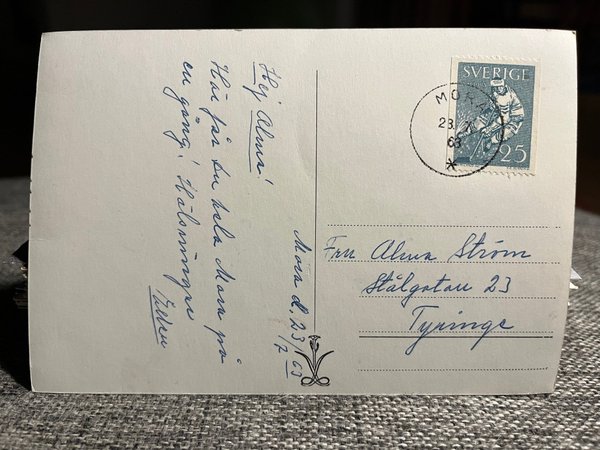 Mora d. 23/7 63
Hej Alma!
Här får du hela Mora på
en gång! Hälsningar
SVERIGE
25
MORA
23. 7.
63
Fru Alma Ström
Stålgatan 23
Tyringe